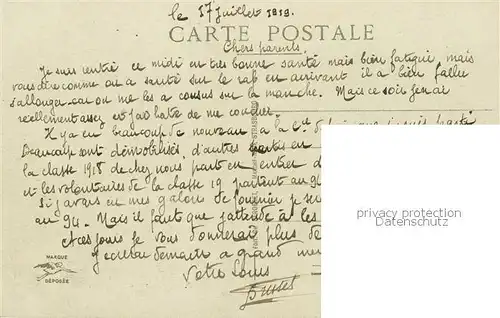 le 17 Juillet 1919.
CARTE POSTALE
Chers parents.
Je suis rentré ce midi en très bonne santé mais bien fatigué, mais
vous dire comme on a sauté sur le rab en arrivant il a bien fallu
s'allonger car on me les a cousus sur la manche. Mais ce soir j'en ai
réellement assez et j'ai hâte de me coucher.
Il y a eu beaucoup de nouveau à la Cie depuis que je suis parti
Beaucoup sont démobilisés, d'autres partis en
la classe 1918 de chez nous part en entier
et les volontaires de la classe 19 partent au 94
Si j'avais eu mes galons de fourrier je
au 94. Mais il faut que j'attende
ces jours je vous donnerai plus de
J'écrirai demain a grand
Votre Louis
MARQUE
DÉPOSÉE
privacy protection
Datenschutz